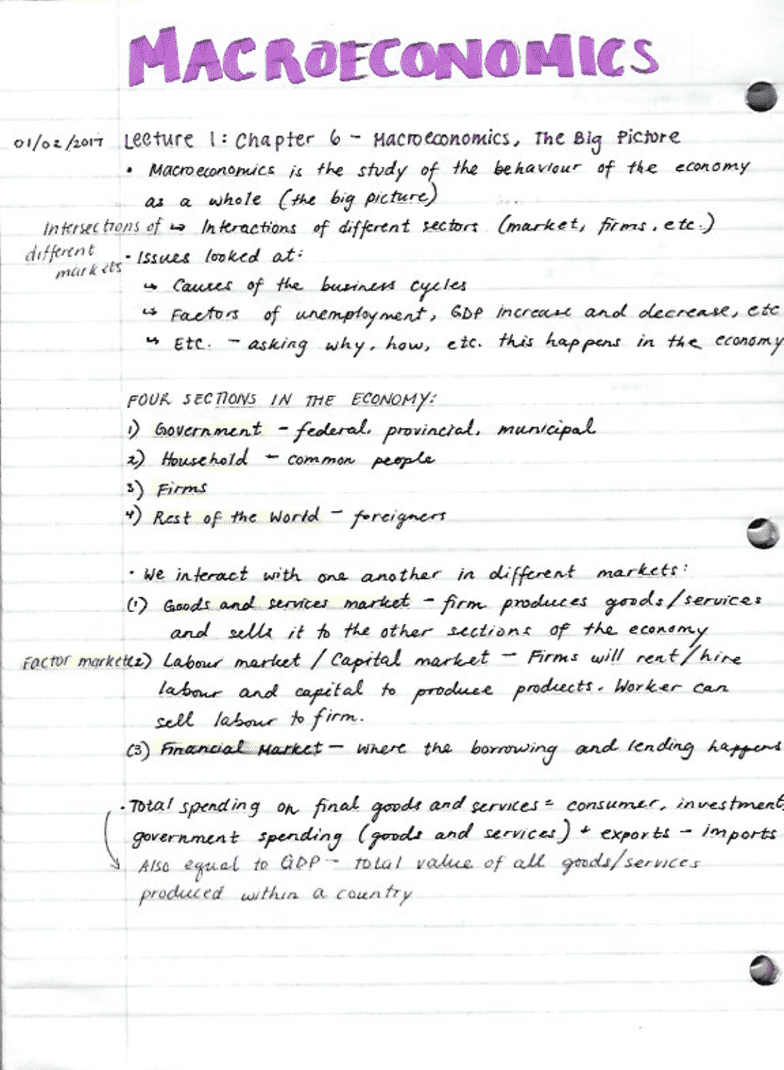 MACROECONOMICS
01/02/2017 Lecture 1: Chapter 6 - Macroeconomics, The Big Picture
• Macroeconomics is the study of the behaviour of the economy
as a whole (the big picture)
Intersections of different markets
↳ Interactions of different sectors (market, firms, etc.)
• Issues looked at:
↳ Causes of the business cycles
↳ Factors of unemployment, GDP increase and decrease, etc
↳ Etc. - asking why, how, etc. this happens in the economy
FOUR SECTIONS IN THE ECONOMY:
1) Government - federal, provincial, municipal
2) Household - common people
3) Firms
4) Rest of the World - foreigners
• We interact with one another in different markets:
(1) Goods and services market - firm produces goods/services
and sells it to the other sections of the economy
Factor market (2) Labour market / Capital market - Firms will rent/hire
labour and capital to produce products. Worker can
sell labour to firm.
(3) Financial Market - where the borrowing and lending happens
• Total spending on final goods and services = consumer, investment,
government spending (goods and services) + exports - imports
Also equal to GDP - total value of all goods/services
produced within a country